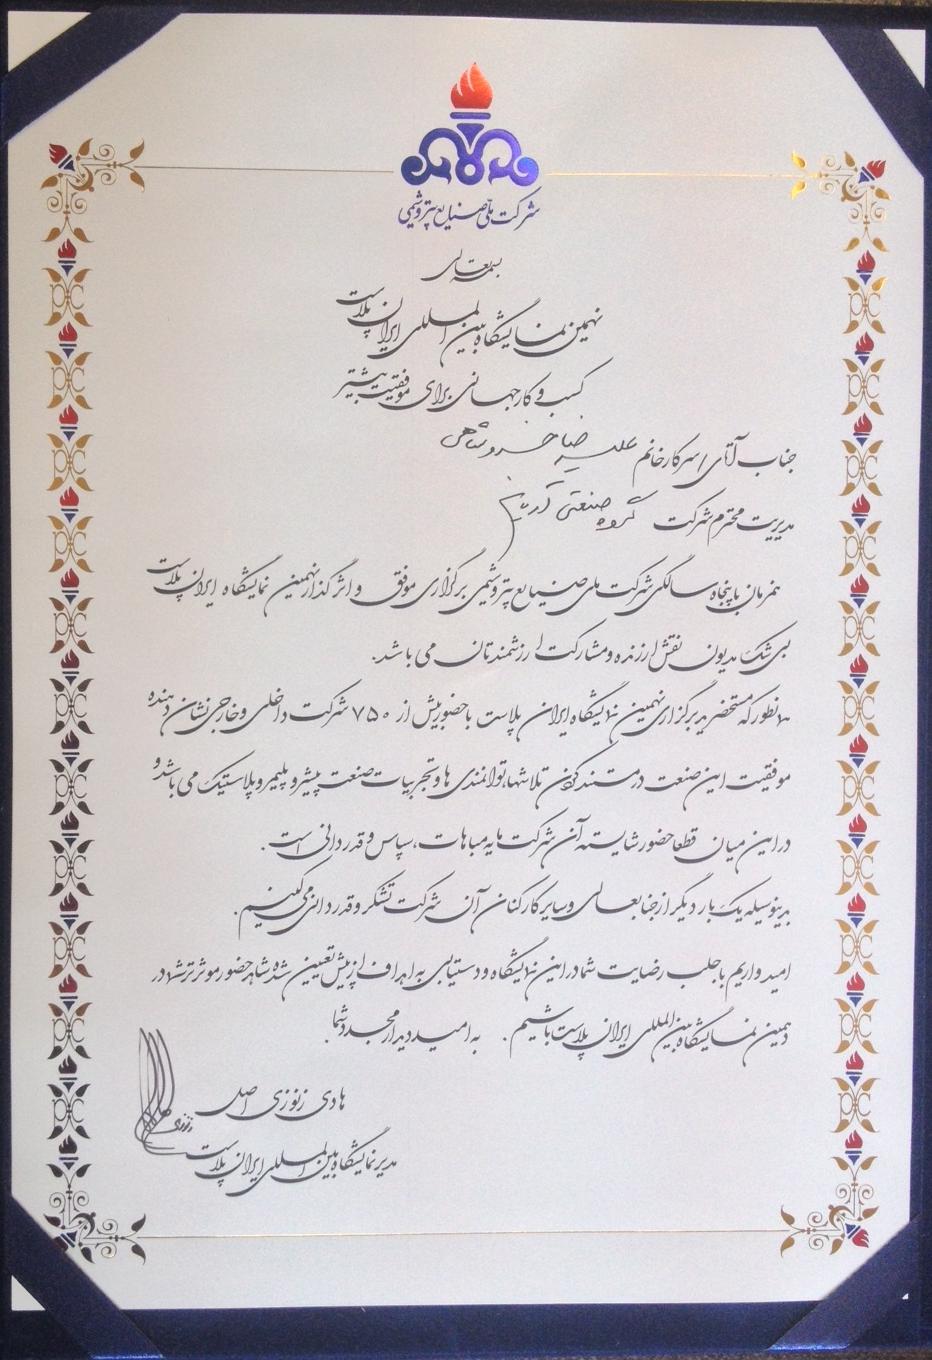 شرکت ملی صنایع پتروشیمی
بسمه تعالی
نهمین نمایشگاه بین المللی ایران پلاست
کسب و کار جهانی برای موفقیت بیشتر
جناب آقای / سرکار خانم علیرضا خسروشاهی
مدیریت محترم شرکت گروه صنعتی آدرینا
همزمان با پنجاه سالگی شرکت ملی صنایع پتروشیمی برگزاری موفق و اثرگذار نهمین نمایشگاه ایران پلاست
بی شک مدیون نقش ارزنده و مشارکت ارزشمندتان می باشد.
همانطور که مستحضرید برگزاری نهمین نمایشگاه ایران پلاست با حضور بیش از ۷۵۰ شرکت داخلی و خارجی نشان دهنده
موفقیت این صنعت در مستند کردن تلاشها، توانمندی ها و تجربیات صنعت پیشرو پلیمر و پلاستیک می باشد و
در این میان قطعا حضور شایسته آن شرکت مایه مباهات، سپاس و قدردانی است.
بدینوسیله یک بار دیگر از جنابعالی و سایر کارکنان آن شرکت تشکر و قدردانی می کنیم.
امیدواریم با جلب رضایت شما در این نمایشگاه و دستیابی به اهداف از پیش تعیین شده شاهد حضور موثرتر شما در
دهمین نمایشگاه بین المللی ایران پلاست باشیم. به امید دیدار مجدد شما.
هادی زنوزی اصل
مدیر نمایشگاه بین المللی ایران پلاست